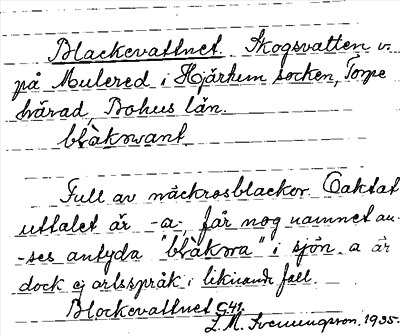 Blackevattnet. Skogsvatten v.
på Mulered i Hjärtum socken, Torpe
härad, Bohus län.
Full av näckrosblackor. Oaktat
uttalet är -a-, får nog namnet an-
-ses antyda "bråkra" i sjön. a är
dock ej ortsspråk i liknande fall.
Blockevattnet G42.
L.M. Svenungsson. 1935.